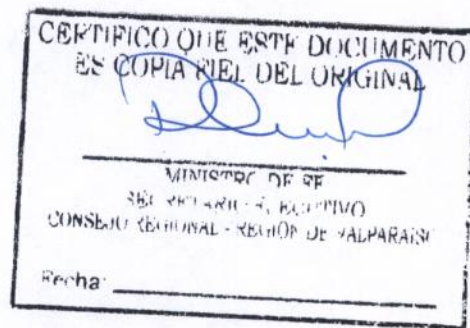 CERTIFICO QUE ESTE DOCUMENTO
ES COPIA FIEL DEL ORIGINAL
MINISTRO DE FE
SECRETARIO EJECUTIVO
CONSEJO REGIONAL - REGIÓN DE VALPARAISO
Fecha: